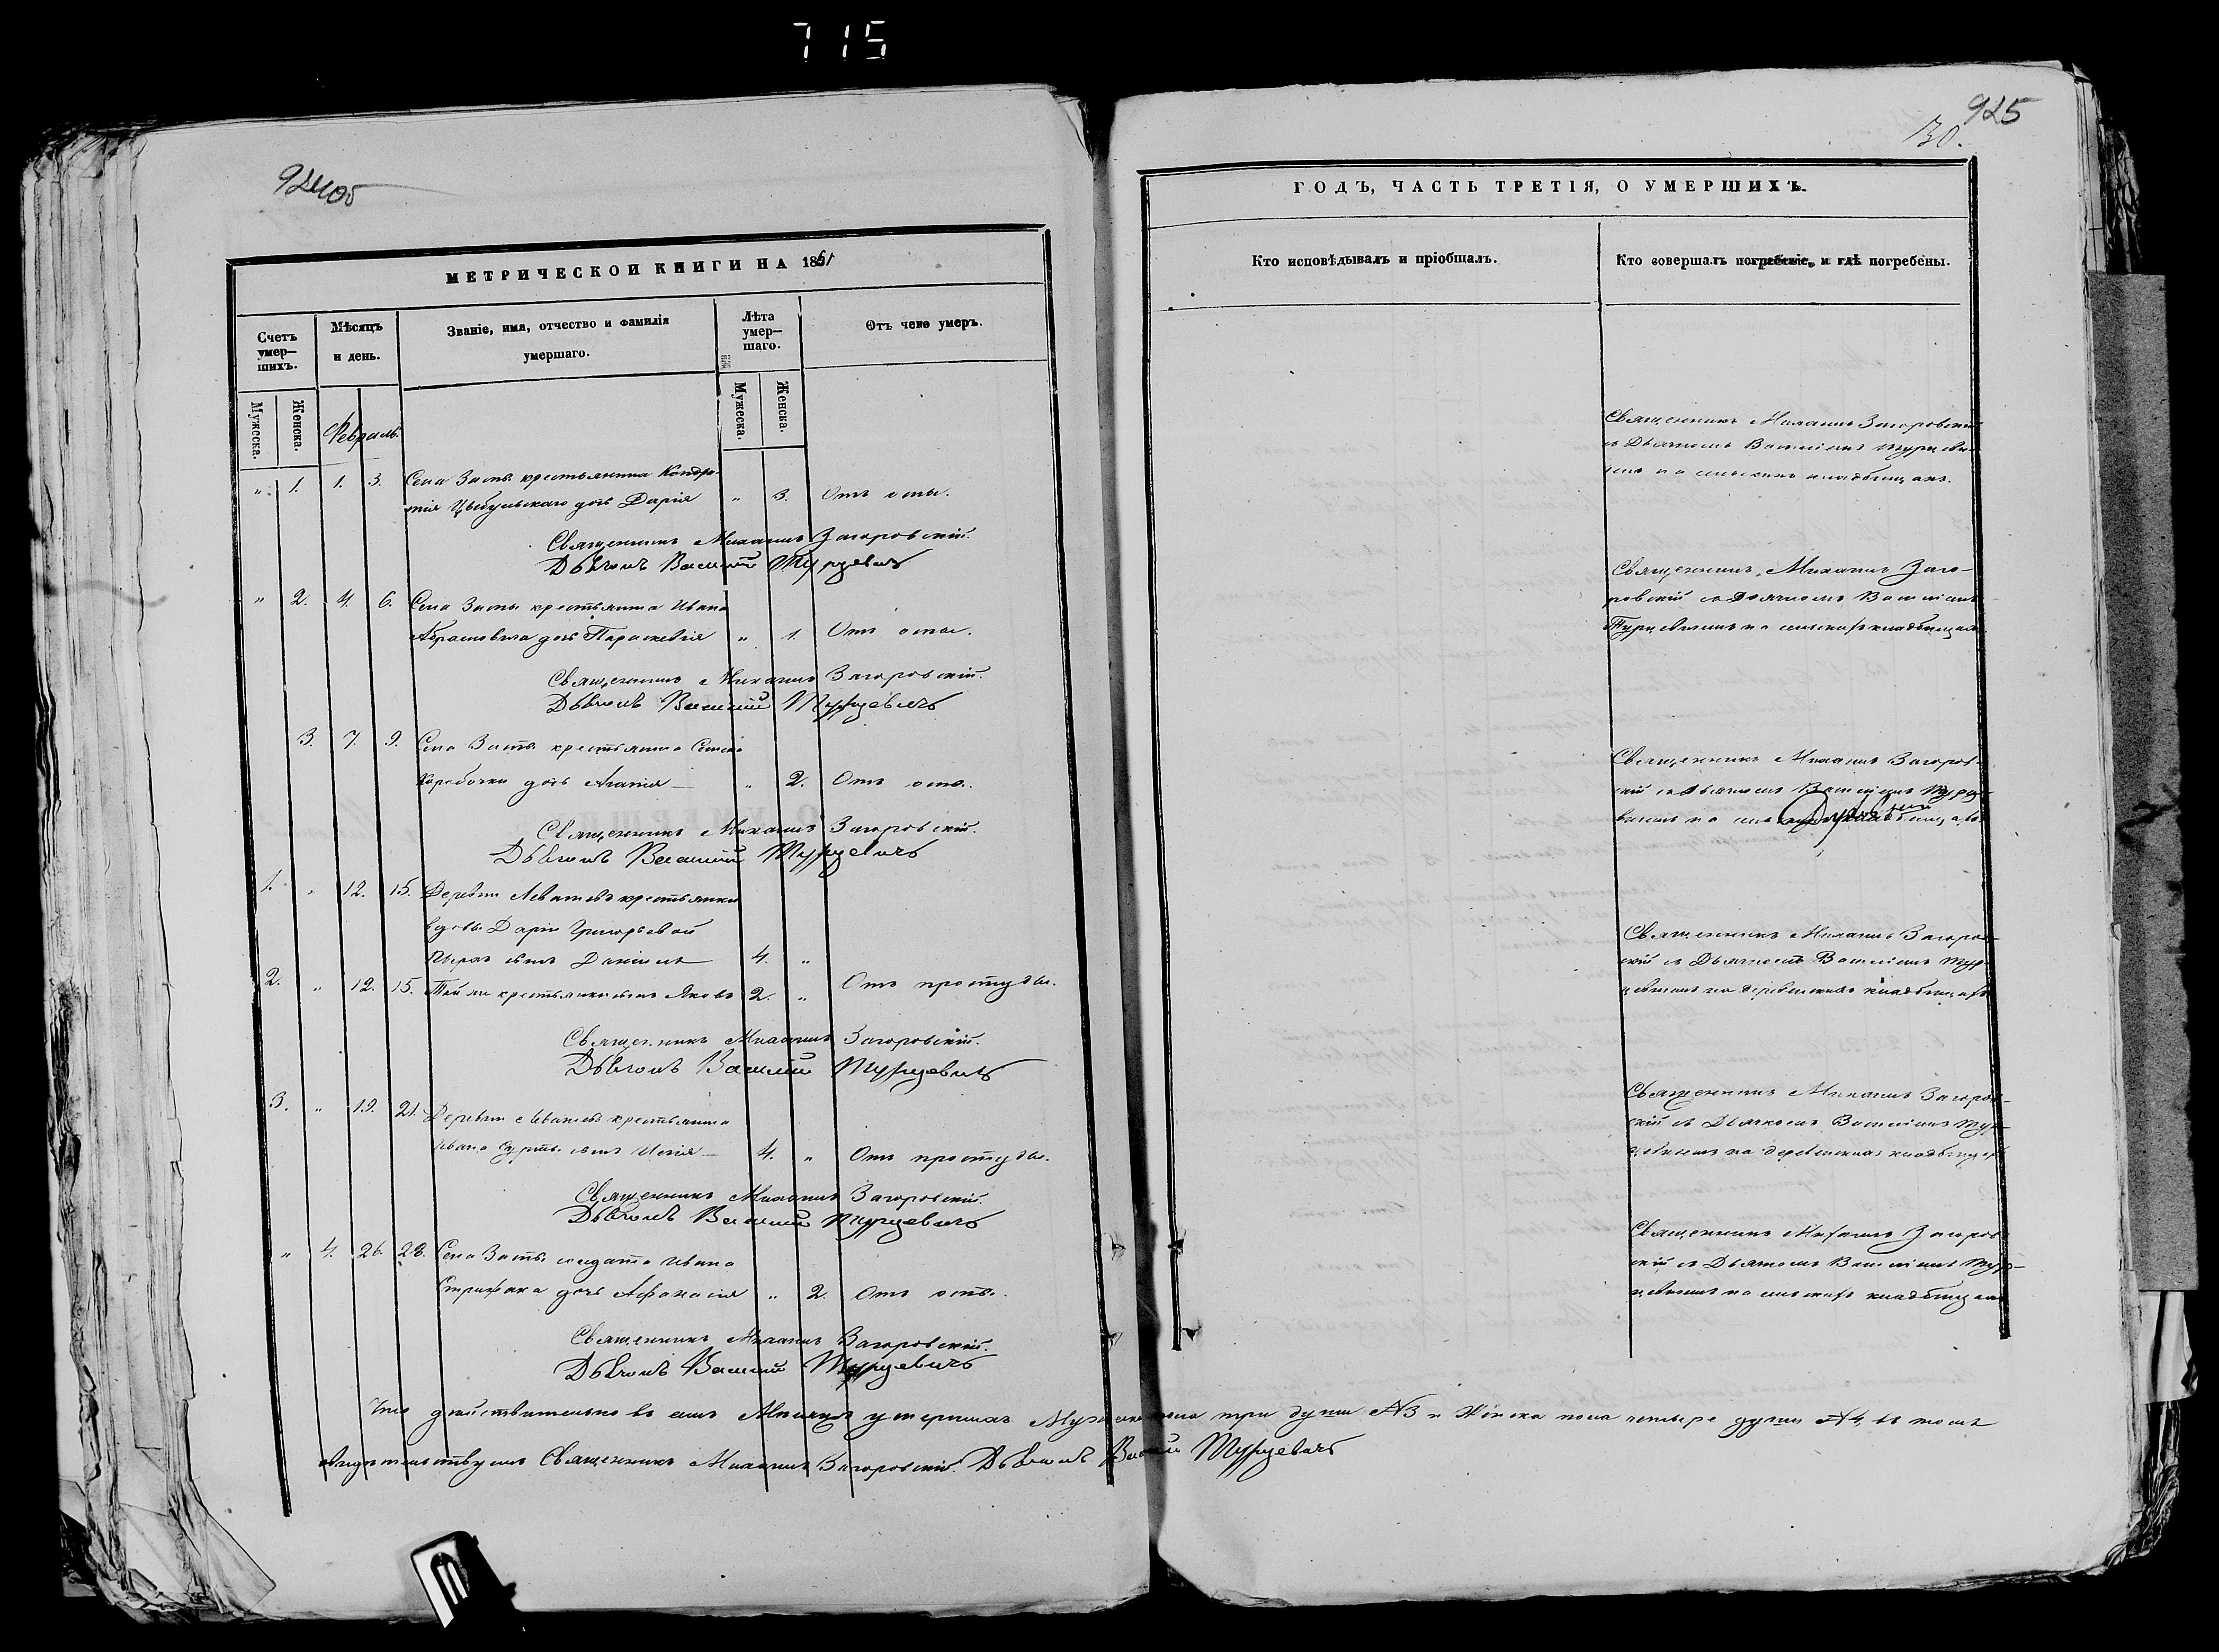 715
924об
925
30.
МЕТРИЧЕСКОЙ КНИГИ НА 1861
Счетъ умер—шихъ.
Мѣсяцъ и день.
Званіе, имя, отчество и фамилія умершаго.
Лѣта умер—шаго.
Отъ чего умеръ.
Мужеска.
Женска.
Февраль.
Мужеска.
Женска.
" 1. 1. 3. Села крестьянина Кондра-
тія Цыбульскаго дочь Дарія " 3. Отъ оспы.
Священникъ Михаилъ Загоровскій.
Дьячокъ Василій Турцевичъ
" 2. 4. 6. Села крестьянина Ивана
Абрамовича дочь Параскевія " 1. Отъ оспы.
Священникъ Михаилъ Загоровскій.
Дьячокъ Василій Турцевичъ
3. 7. 9. Села крестьянина
Коробочки дочь Агапія — " 2. Отъ оспы.
Священникъ Михаилъ Загоровскій.
Дьячокъ Василій Турцевичъ
1. " 12. 15. Деревни крестьянки
вдовы Даріи Григорьевой
сынъ Даніилъ 4. "
2. " 12. 15. Той же крестьянки сынъ Яковъ 2. " Отъ простуды.
Священникъ Михаилъ Загоровскій.
Дьячокъ Василій Турцевичъ
3. " 19. 21. Деревни крестьянина
Ивана сынъ — 4. " Отъ простуды.
Священникъ Михаилъ Загоровскій.
Дьячокъ Василій Турцевичъ
" 4. 26. 28. Села солдата Ивана
Стрижака дочь Афанасія " 2. Отъ оспы.
Священникъ Михаилъ Загоровскій.
Дьячокъ Василій Турцевичъ
Что дѣйствительно въ семъ Мѣсяцѣ умершихъ Мужеска пола три души №3 и Женска пола четыре души №4, въ томъ
свидѣтельствуемъ Священникъ Михаилъ Загоровскій. Дьячокъ Василій Турцевичъ
ГОДЪ, ЧАСТЬ ТРЕТІЯ, О УМЕРШИХЪ.
Кто исповѣдывалъ и пріобщалъ.
Кто совершалъ погребеніе, и гдѣ погребены.
Священникъ Михаилъ Загоровскій
съ Дьячкомъ Василіемъ Турцеви-
чемъ на сельскихъ кладбищахъ.
Священникъ Михаилъ Заго-
ровскій съ Дьячкомъ Василіемъ
Турцевичемъ на сельскихъ кладбищахъ
Священникъ Михаилъ Загоров-
скій съ Дьячкомъ Василіемъ Турце-
вичемъ на кладбищахъ
Священникъ Михаилъ Загоров-
скій съ Дьячкомъ Василіемъ Тур-
цевичемъ на деревенскихъ кладбищахъ
Священникъ Михаилъ Загоров-
скій съ Дьячкомъ Василіемъ Тур-
цевичемъ на деревенскихъ кладбищахъ
Священникъ Михаилъ Загоров-
скій съ Дьячкомъ Василіемъ Тур-
цевичемъ на сельскихъ кладбищахъ